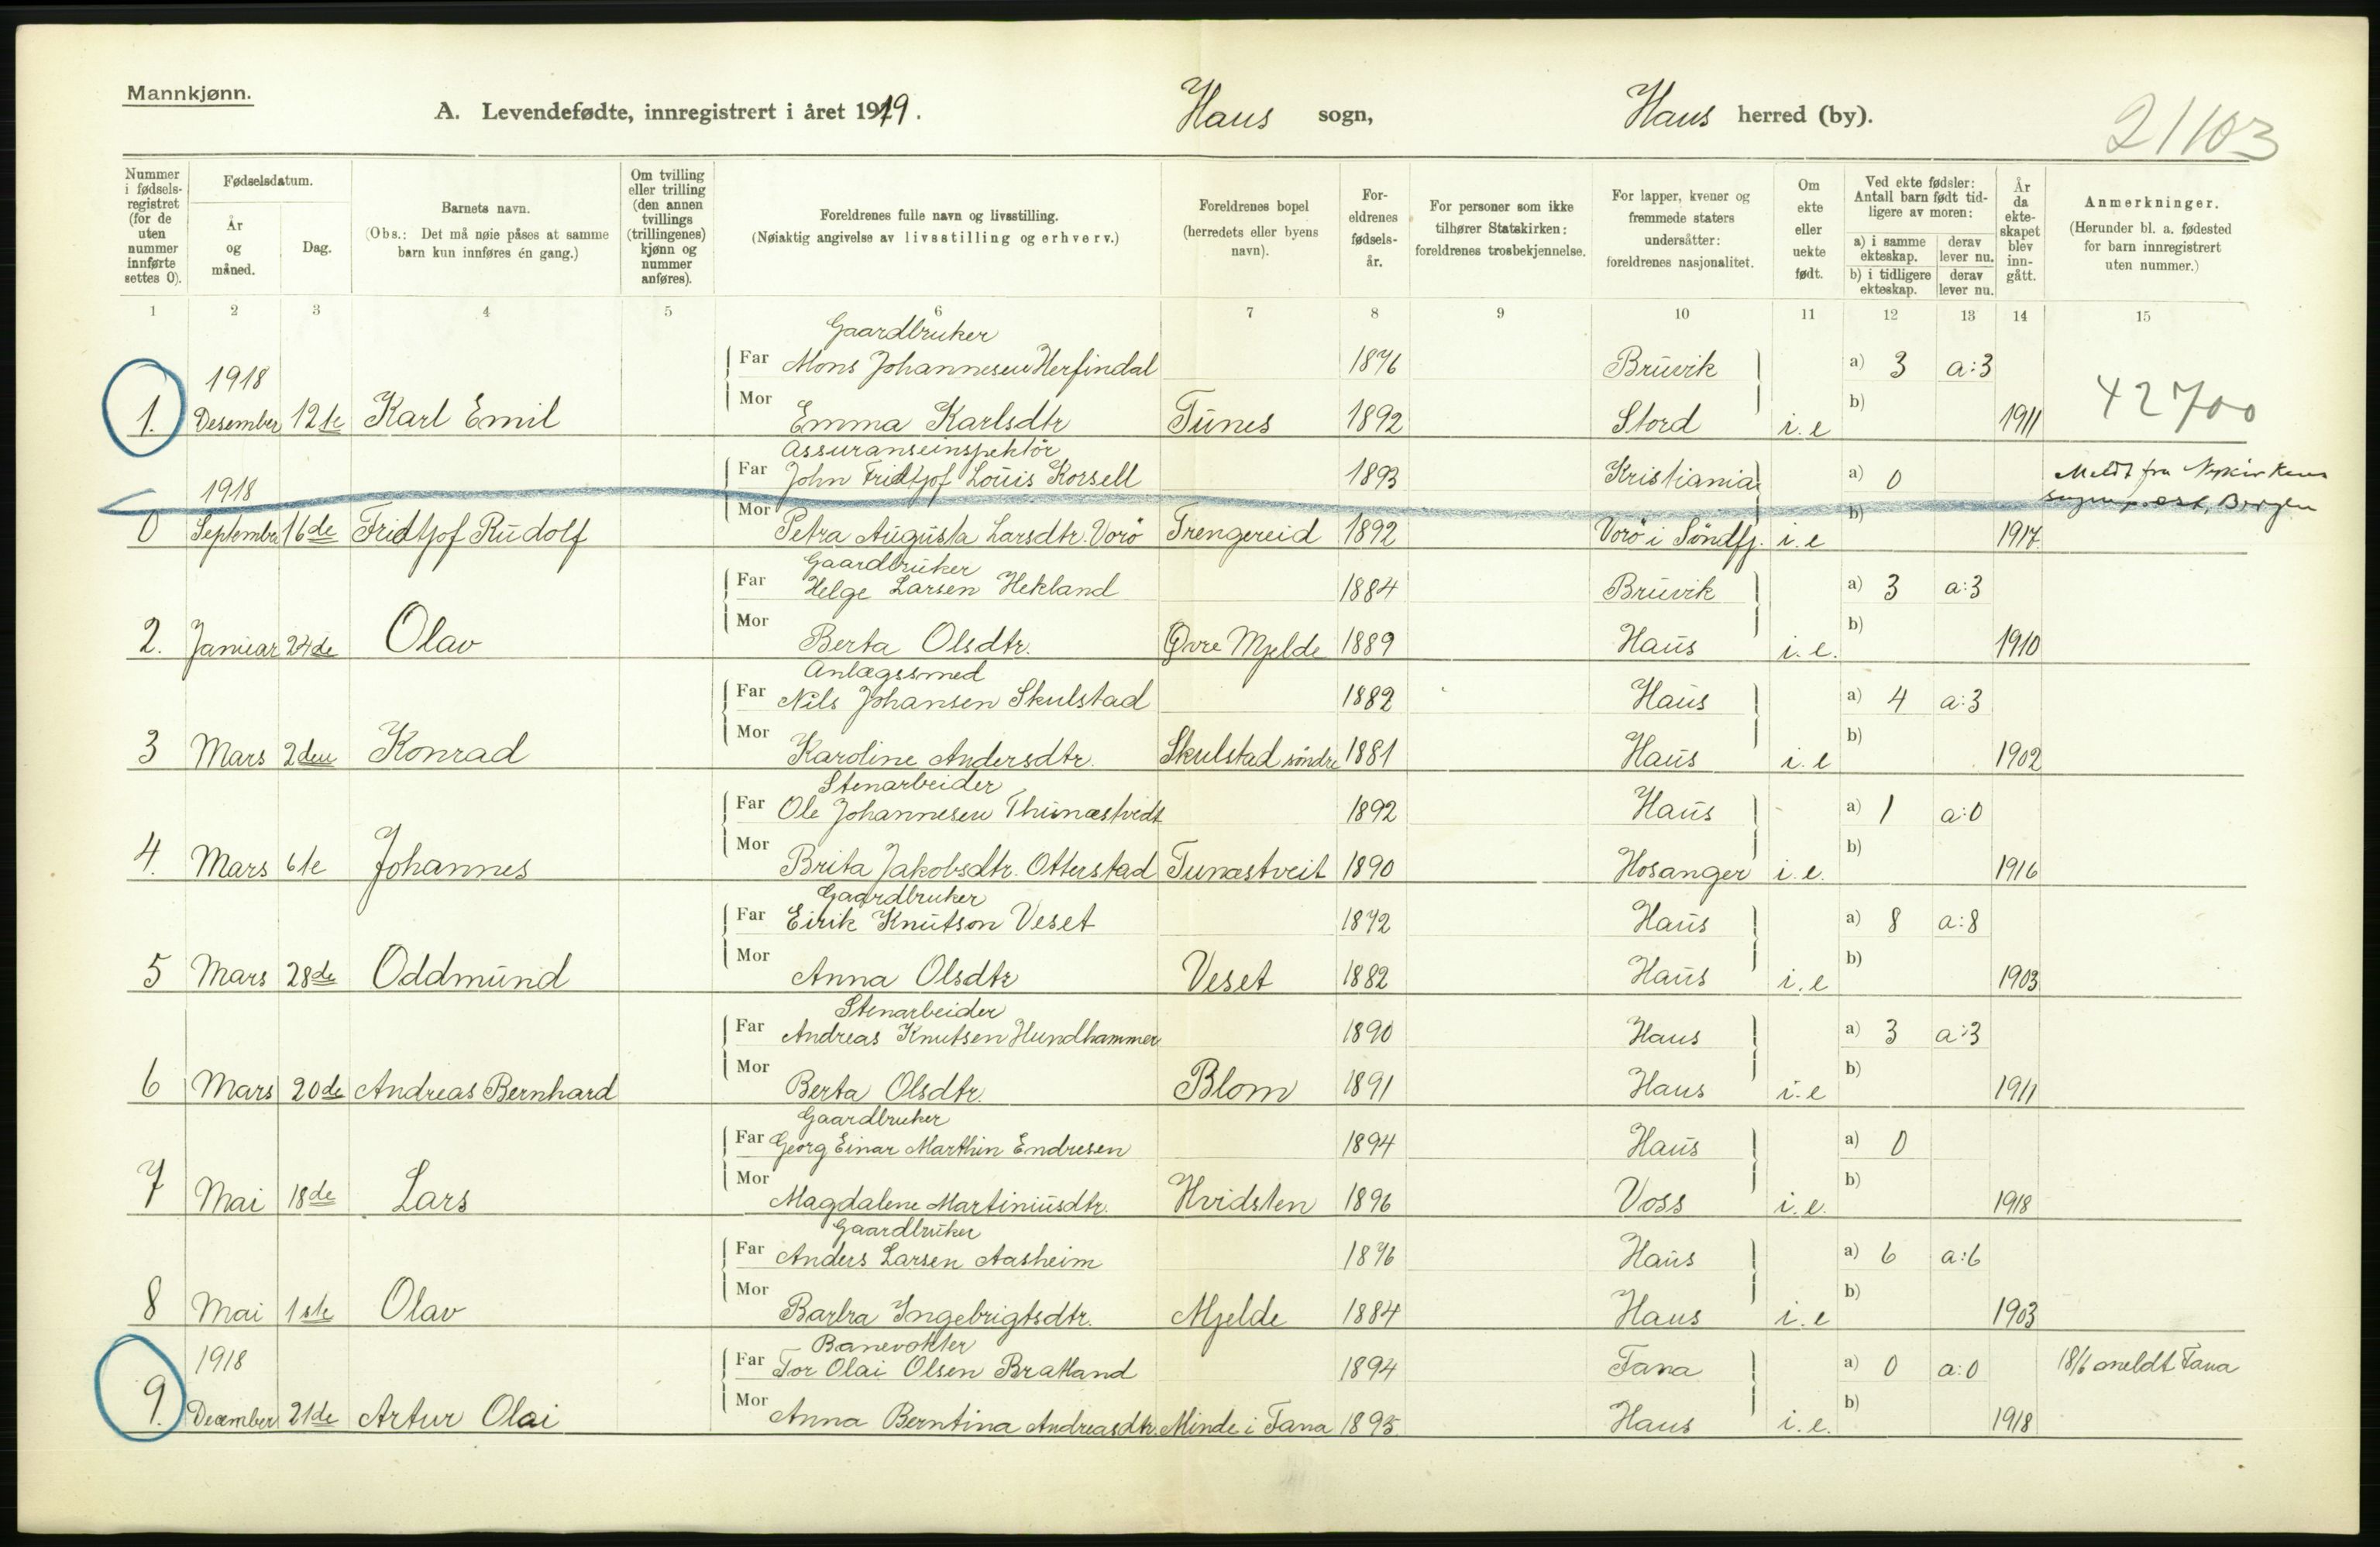 Mannkjønn.
A. Levendefødte, innregistrert i året 1919. Haus sogn, Haus herred (by). 21103
Nummer i fødselsregistret (for de uten nummer innførte settes 0).
Fødselsdatum.
År og måned.
Dag.
Barnets navn.
(Obs.: Det må nøie påses at samme barn kun innføres én gang.)
Om tvilling eller trilling (den annen tvillings (trillingenes) kjønn og nummer anføres).
Foreldrenes fulle navn og livsstilling.
(Nøiaktig angivelse av livsstilling og erhverv.)
Foreldrenes bopel (herredets eller byens navn).
Foreldrenes fødselsår.
For personer som ikke tilhører Statskirken: foreldrenes trosbekjennelse.
For lapper, kvener og fremmede staters undersåtter: foreldrenes nasjonalitet.
Om ekte eller uekte født.
Ved ekte fødsler: Antall barn født tidligere av moren:
a) i samme ekteskap. derav lever nu.
b) i tidligere ekteskap. derav lever nu.
År da ekteskapet blev inngått.
Anmerkninger.
(Herunder bl. a. fødested for barn innregistrert uten nummer.)
1 2 3 4 5 6 7 8 9 10 11 12 13 14 15
Gaardbruker
1918 Far Mons Johannesen Herfindal 1876 Bruvik a) 3 a:3
1. Desember 12te Karl Emil Mor Emma Karlsdtr Tunes 1892 Stord i.e b) 1911 42700
Assuranseinspektör
1918 Far John Fridtjof Louis Korsell 1893 Kristiania a) 0 Meldt fra Nykirkens
sogneprest, Bergen
0 September 16de Fridtjof Rudolf Mor Petra Augusta Larsdtr. Vorö Trengereid 1892 Vorö i Söndfj. i.e b) 1917.
Gaardbruker
Far Helge Larsen Hekland 1884 Bruvik a) 3 a:3
2. Januar 24de Olav Mor Berta Olsdtr. Övre Mjelde 1889 Haus i.e. b) 1910
Anlægssmed
Far Nils Johansen Skulstad 1882 Haus a) 4 a:3
3 Mars 2den Konrad Mor Karoline Andersdtr. Skulstad söndre 1881 Haus i.e b) 1902
Stenarbeider
Far Ole Johannesen Thunæstvedt 1892 Haus a) 1 a:0
4. Mars 6te Johannes Mor Brita Jakobsdtr. Otterstad Tunæstveit 1890 Hosanger i.e. b) 1916
Gaardbruker
Far Eirik Knutson Veset 1872 Haus a) 8 a:8
5 Mars 28de Oddmund Mor Anna Olsdtr Veset 1882 Haus i.e b) 1903
Stenarbeider
Far Andreas Knutsen Hundhammer 1890 Haus a) 3 a:3
6 Mars 20de Andreas Bernhard Mor Berta Olsdtr. Blom 1891 Haus i.e b) 1911
Gaardbruker
Far Georg Einar Marthin Endresen 1894 Haus a) 0
7 Mai 18de Lars Mor Magdalene Martiniusdtr. Hvidsten 1896 Voss i.e. b) 1918
Gaardbruker
Far Anders Larsen Aasheim 1876 Haus a) 6 a:6
8 Mai 1ste Olav Mor Barbra Ingebrigtsdtr. Mjelde 1884 Haus i.e b) 1903
Banevokter
1918 Far Tor Olai Olsen Bratland 1894 Fana a) 0 a:0 18/6 meldt Fana
9. December 21de Artur Olai Mor Anna Berntina Andreasdtr. Minde i Fana 1895. Haus i.e. b) 1918